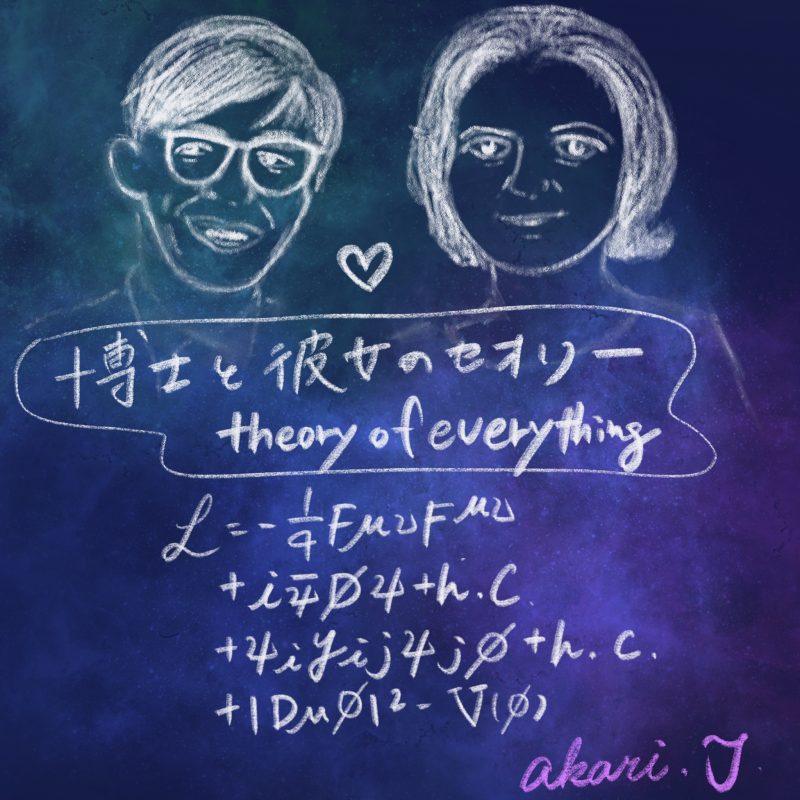 博士と彼女のセオリー
theory of everything
L = -1/4 FμνF^μν
+ iψ̄D̸ψ + h.c.
+ ψi yij ψjφ + h.c.
+ |Dμφ|² - V(φ)
akari.J